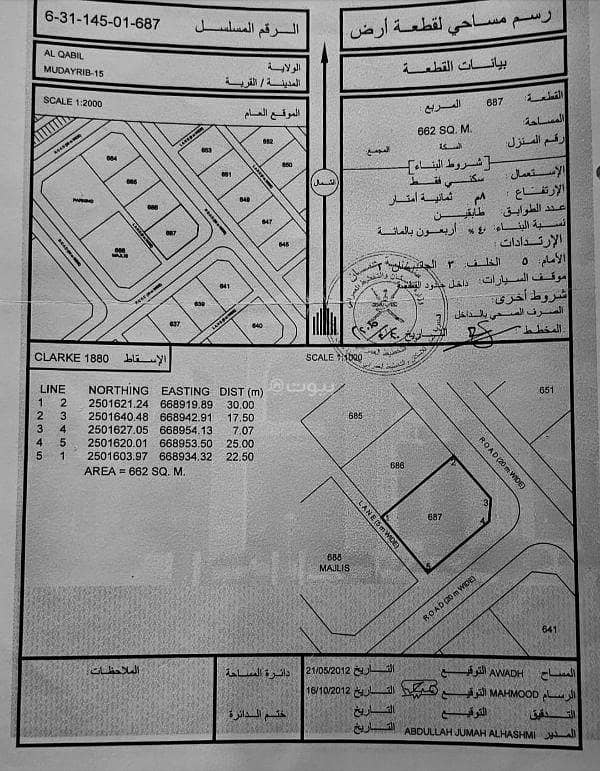 رسم مساحي لقطعة أرض
الرقم المسلسل 6-31-145-01-687
بيانات القطعة
AL QABIL الولاية
MUDAYRIB-15 المدينة / القرية
القطعة: 687 المربع
المساحة: 662 SQ. M.
رقم المنزل السكة المجمع
[شروط البناء]
الإستعمال: سكني فقط
الإرتفاع: ٨م ثمانية أمتار
عدد الطوابق: طابقين
نسبة البناء: ٤٠٪ أربعون بالمائة
الإرتدادات:
الأمام: ٥ الخلف: ٣ الجانبان: ٢
موقف السيارات: داخل حدود القطعة
شروط أخرى:
الصرف الصحي بالداخل
المخطط التاريخ
SCALE 1:2000 الموقع العام
ROAD (20 m WIDE)
684
685
686
687
PARKING
688
MAJLIS
LANE (5 m WIDE)
663
661
649
647
645
652
650
ROAD (20 m WIDE)
641
639
637
640
الشمال
CLARKE 1880 الإسقاط
SCALE 1:1000
LINE NORTHING EASTING DIST (m)
1 2 2501621.24 668919.89 30.00
2 3 2501640.48 668942.91 17.50
3 4 2501627.05 668954.13 7.07
4 5 2501620.01 668953.50 25.00
5 1 2501603.97 668934.32 22.50
AREA = 662 SQ. M.
بيوت
651
685
686
ROAD (20 m WIDE)
2
3
4
5
687
LANE (5 m WIDE)
688
MAJLIS
ROAD (20 m WIDE)
641
المساح AWADH التوقيع التاريخ 21/05/2012
الرسام MAHMOOD التوقيع التاريخ 16/10/2012
التدقيق التوقيع التاريخ
المدير ABDULLAH JUMAH ALHASHMI التاريخ
دائرة المساحة
ختم الدائرة
الملاحظات: